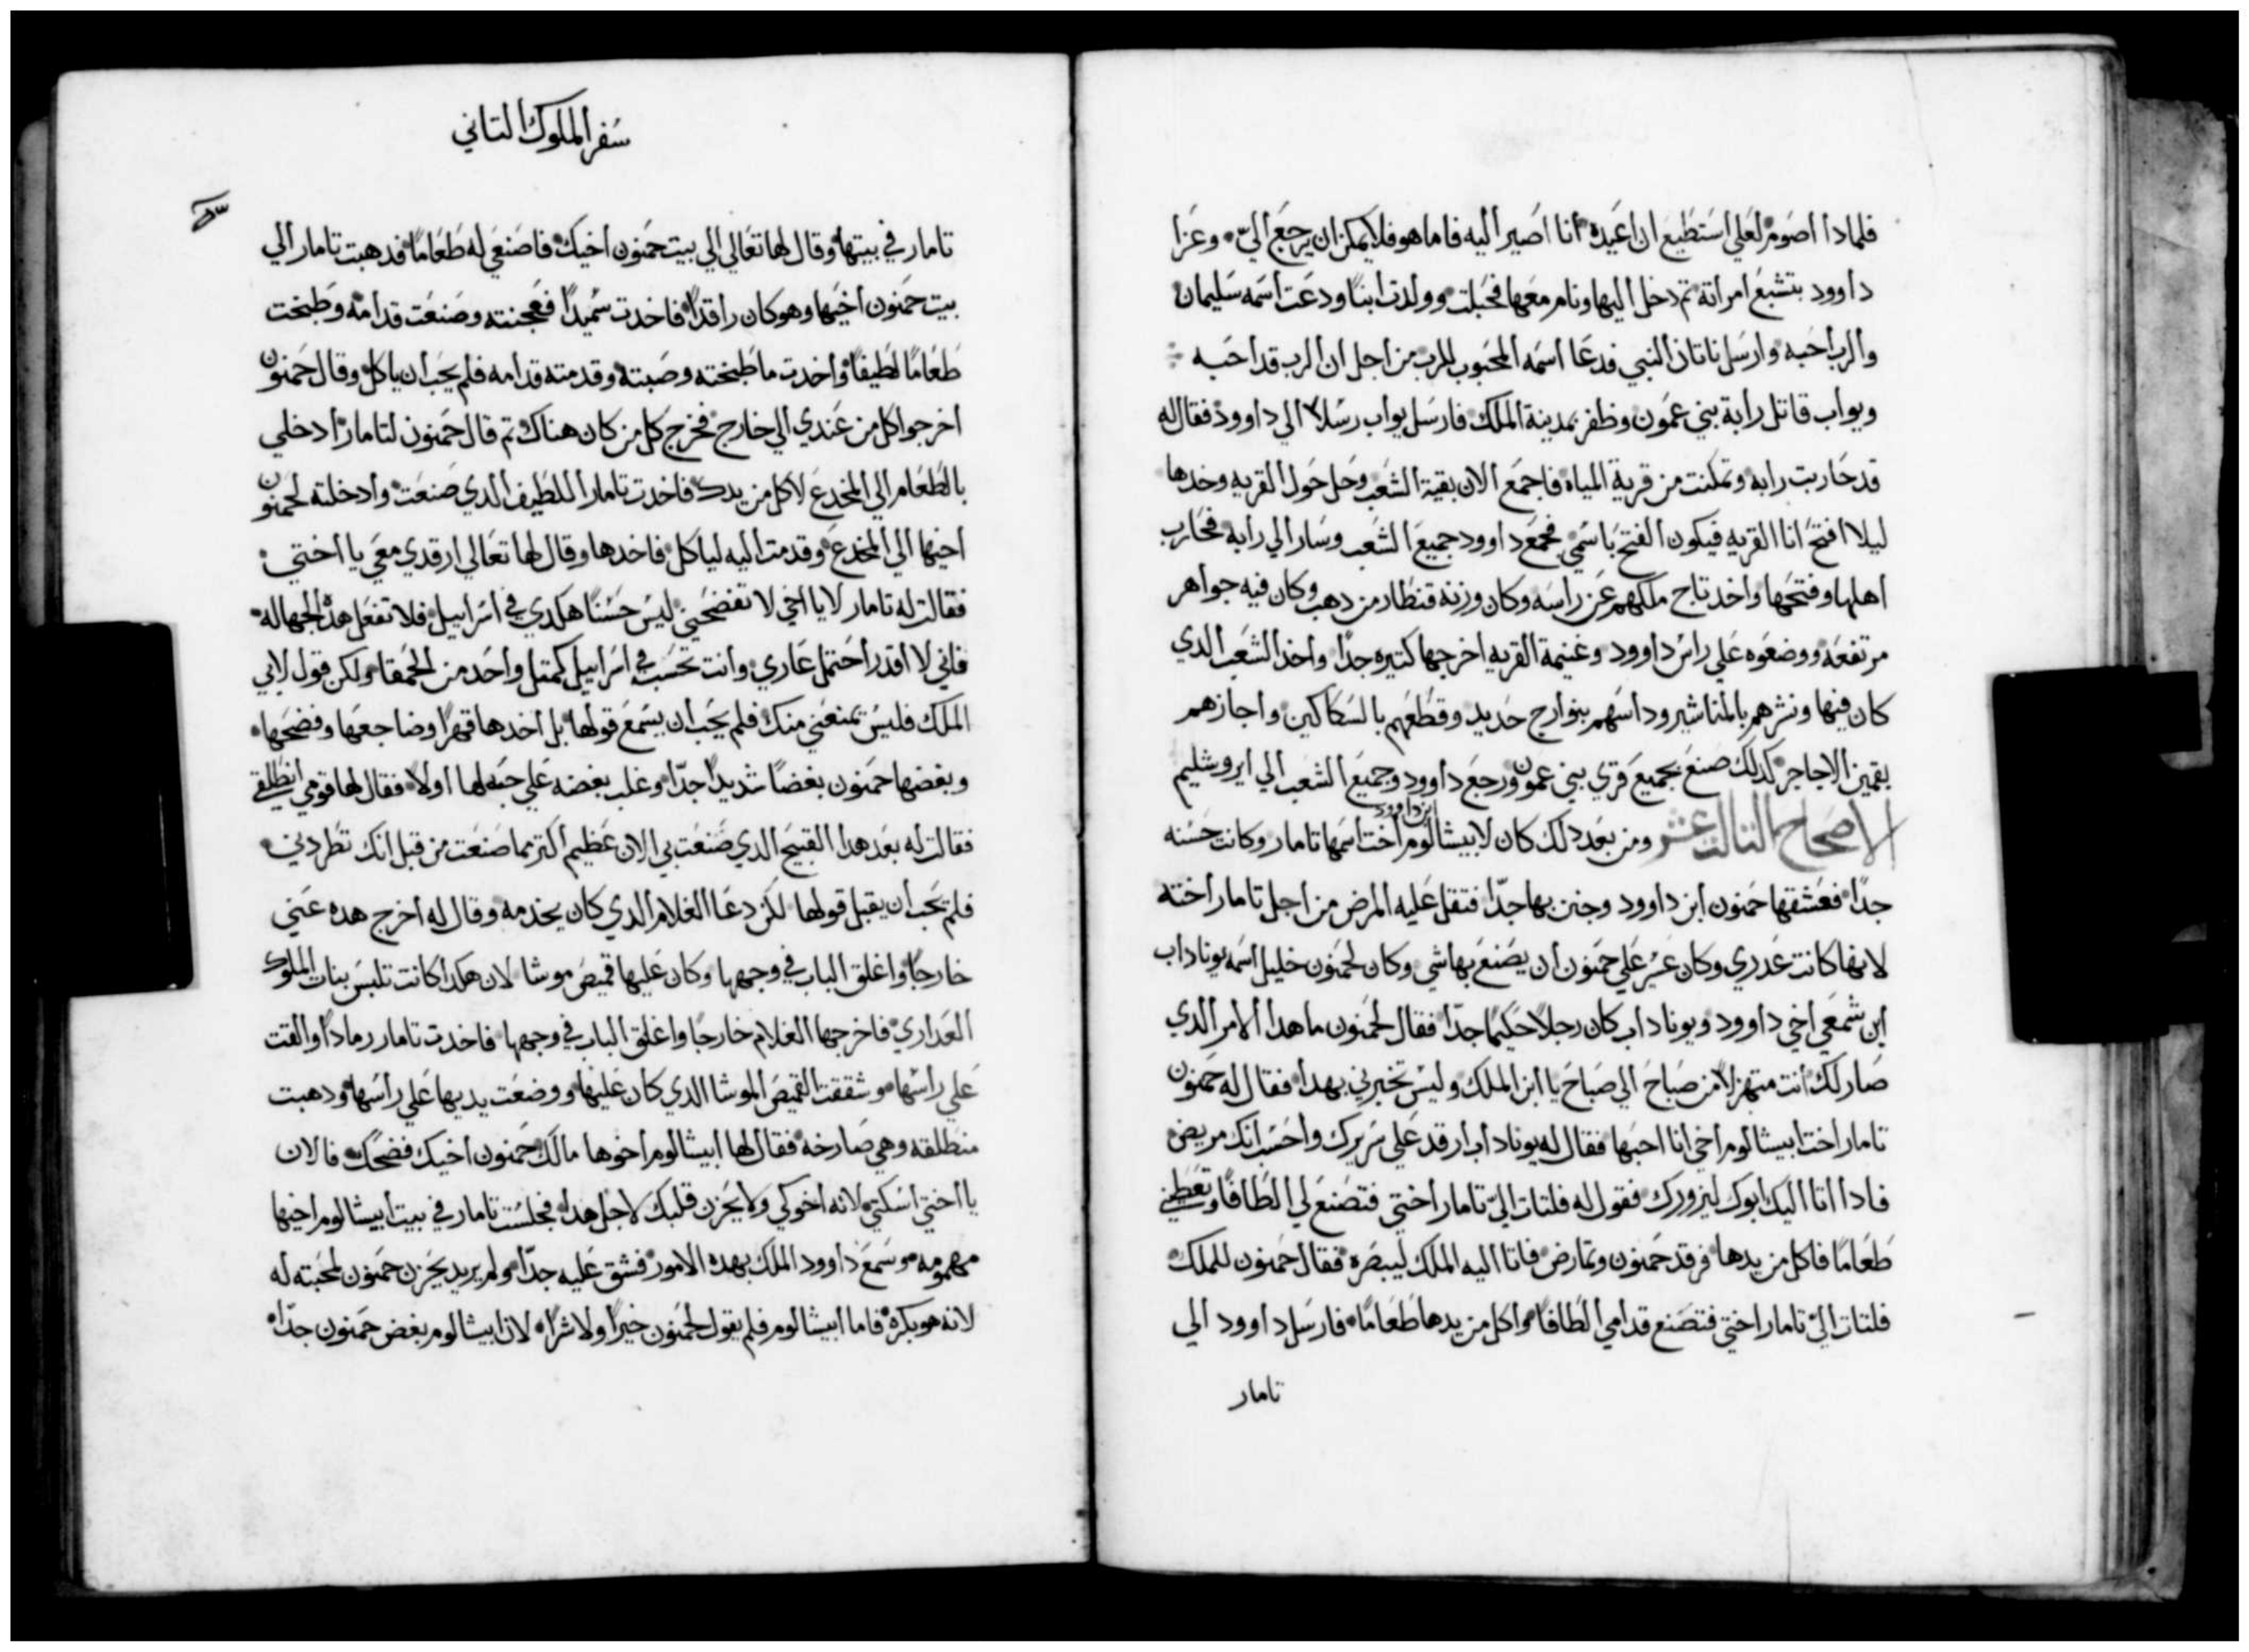 فلمادا أصوم لعلي استطيع ان اعيده أنا اصير اليه فاما هو فلا يمكن ان يرجع اليّ وعزا
داوود بتشبع امراته تم دخل اليها ونام معها فحبلت وولدت ابنًا ودعت اسمه سليمان
والرب أحبه وارسل ناتان النبي فدعا اسمه المحبوب للرب من اجل ان الرب قد احبه
ويواب قاتل رابة بني عمون وظفر بمدينة الملك فارسل يواب رسلا الي داوود فقال له
قد حاربت رابه وتمكنت من قرية المياه فاجمع الان بقية الشعب وحل حول القريه وخدها
ليلا افتح انا القريه فيكون الفتح باسمي فجمع داوود جميع الشعب وسار الي رابه فحارب
اهلها وفتحها واخد تاج ملكهم عن راسه وكان وزنة قنطار من دهب وكان فيه جواهر
مرتفعه ووضعوه علي راس داوود وغنيمة القريه اخرجها كتيره جدًا واخذ الشعب الدي
كان فيها ونشرهم بالمناشير وداسهم بنوارج حديد وقطعهم بالسكاكين واجازهم
بقمين الاجاجر كدلك صنع بجميع قري بني عمون ورجع داوود وجميع الشعب الي ايروشليم
الاصحاح التالت عشر ومن بعد دلك كان لابيشالوم ابن داوود أخت اسمها تامار وكانت حسنه
جدًا فعشقها حمنون أبن داوود وجنن بها جدًا فتقل عليه المرض من اجل تامار أخته
لانها كانت عدري وكان عسر علي حمنون ان يصنع بها شي وكان لحمنون خليل أسمه يوناداب
أبن شمعي أخي داوود ويوناداب كان رجلًا حكيمًا جدًا فقال لحمنون ما هدا ألامر الدي
صار لك أنت متهزلًا من صباح الي صباح يا ابن الملك وليس تخبرني بهدا فقال له حمنون
تامار اخت ابيشالوم أخي انا احبها فقال له يوناداب أرقد علي سريرك واحسب انك مريض
فادا اتا اليك ابوك ليزورك فقول له فلتات اليّ تامار أختي فتصنع لي الطافًا وتعطيني
طعامًا فاكل من يدها فرقد حمنون وتمارض فاتا اليه الملك ليبصره فقال حمنون للملك
فلتات اليّ تامار اختي فتصنع قدامي الطافًا واكل من يدها طعامًا فارسل داوود الي
تامار
سفر الملوك التاني
تامار في بيتها وقال لها تعالي الي بيت حمنون أخيك فاصنعي له طعامًا فدهبت تامار الي
بيت حمنون اخيها وهو كان راقدًا فاخدت سميدًا فعجنته وصنعت قدامه وطبخت
طعامًا لطيفًا واخدت ما طبخته وصبته وقدمته قدامه فلم يحب أن ياكل وقال حمنون
اخرجوا كل من عندي الي خارج فخرج كل من كان هناك تم قال حمنون لتامار أدخلي
بالطعام الي المخدع لاكل من يدك فاخدت تامار اللطيف الدي صنعت وأدخلته لحمنون
اخيها الي المخدع وقدمت اليه لياكل فاخدها وقال لها تعالي ارقدي معي يا أختي
فقالت له تامار لا يا اخي لا تفضحني ليس حسنًا هكدي في اسراييل فلا تفعل هده الجهاله
فاني لا اقدر أحتمل عاري وأنت تحسب في اسراييل كمتل واحد من الحمقا ولكن قول لابي
الملك فليس تمنعني منك فلم يحب ان يسمع قولها بل اخدها قهرًا وضاجعها وفضحها
وبغضها حمنون بغضًا شديدًا جدًا وغلب بغضه علي حبه لها أولا فقال لها قومي انطلقي
فقالت له بعد هدا القبيح الدي صنعت بي الان عظيم أكتر مما صنعت من قبل انك تطردني
فلم يحب أن يقبل قولها لكن دعا الغلام الدي كان يخدمه وقال له أخرج هده عني
خارجًا واغلق الباب في وجهها وكان عليها قميص موشا لان هكدا كانت تلبس بنات الملوك
العداري فاخرجها الغلام خارجًا واغلق الباب في وجهها فاخدت تامار رمادًا والقت
علي رأسها وشققت القميص الموشا الدي كان عليها ووضعت يديها علي رأسها ودهبت
منطلقه وهي صارخه فقال لها ابيشالوم أخوها مالك حمنون أخيك فضحك فالان
يا أختي أسكتي لانه أخوكي ولا يحزن قلبك لاجل هدا فجلست تامار في بيت ابيشالوم اخيها
مهمومه وسمع داوود الملك بهده الامور فشق عليه جدًا ولم يريد يحزن حمنون لمحبته له
لانه هو بكره فاما ابيشالوم فلم يقول لحمنون خيرًا ولا شرًا لان ابيشالوم بغض حمنون جدًا